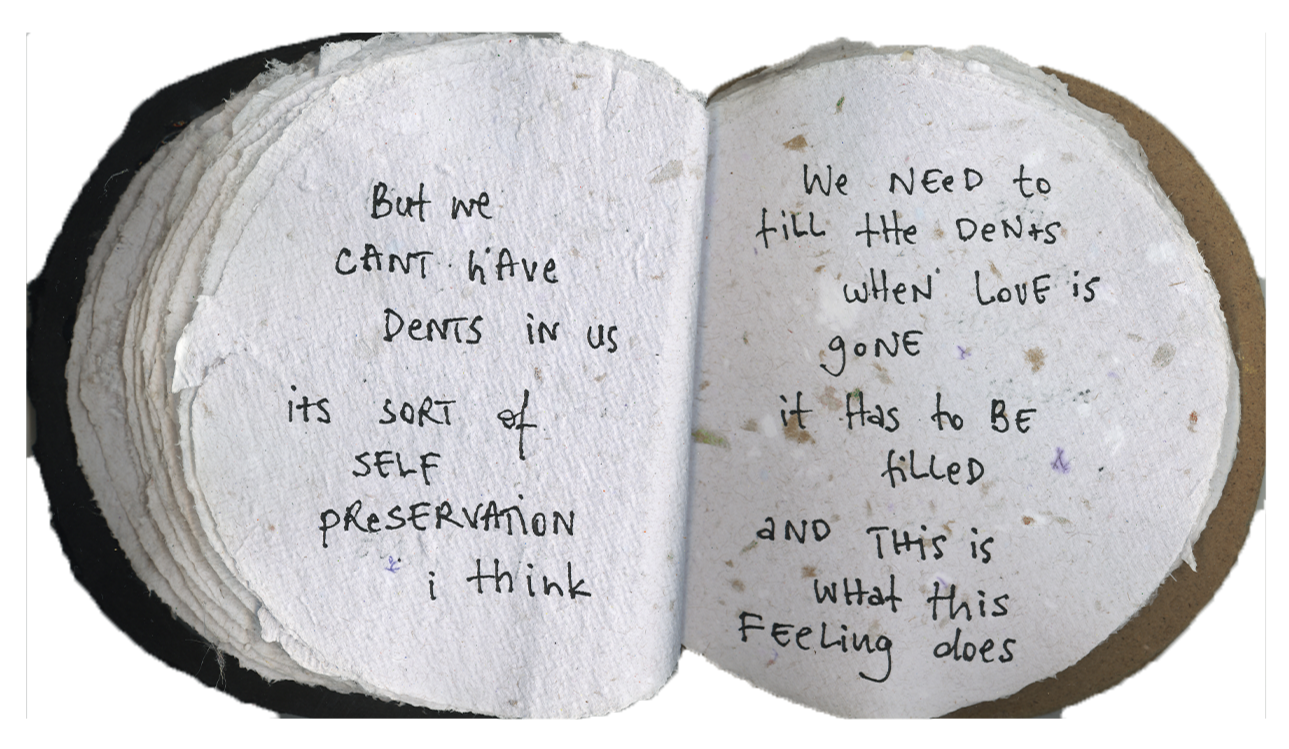 But we
CANT hAve
DeNTS iN us
its SORT of
SELF
pReSERVATiON
i think
We NEeD to
fiLL tHe DeNts
wHeN LovE is
goNE
it Has to BE
filLeD
aND THis is
wHat this
FEeLing does